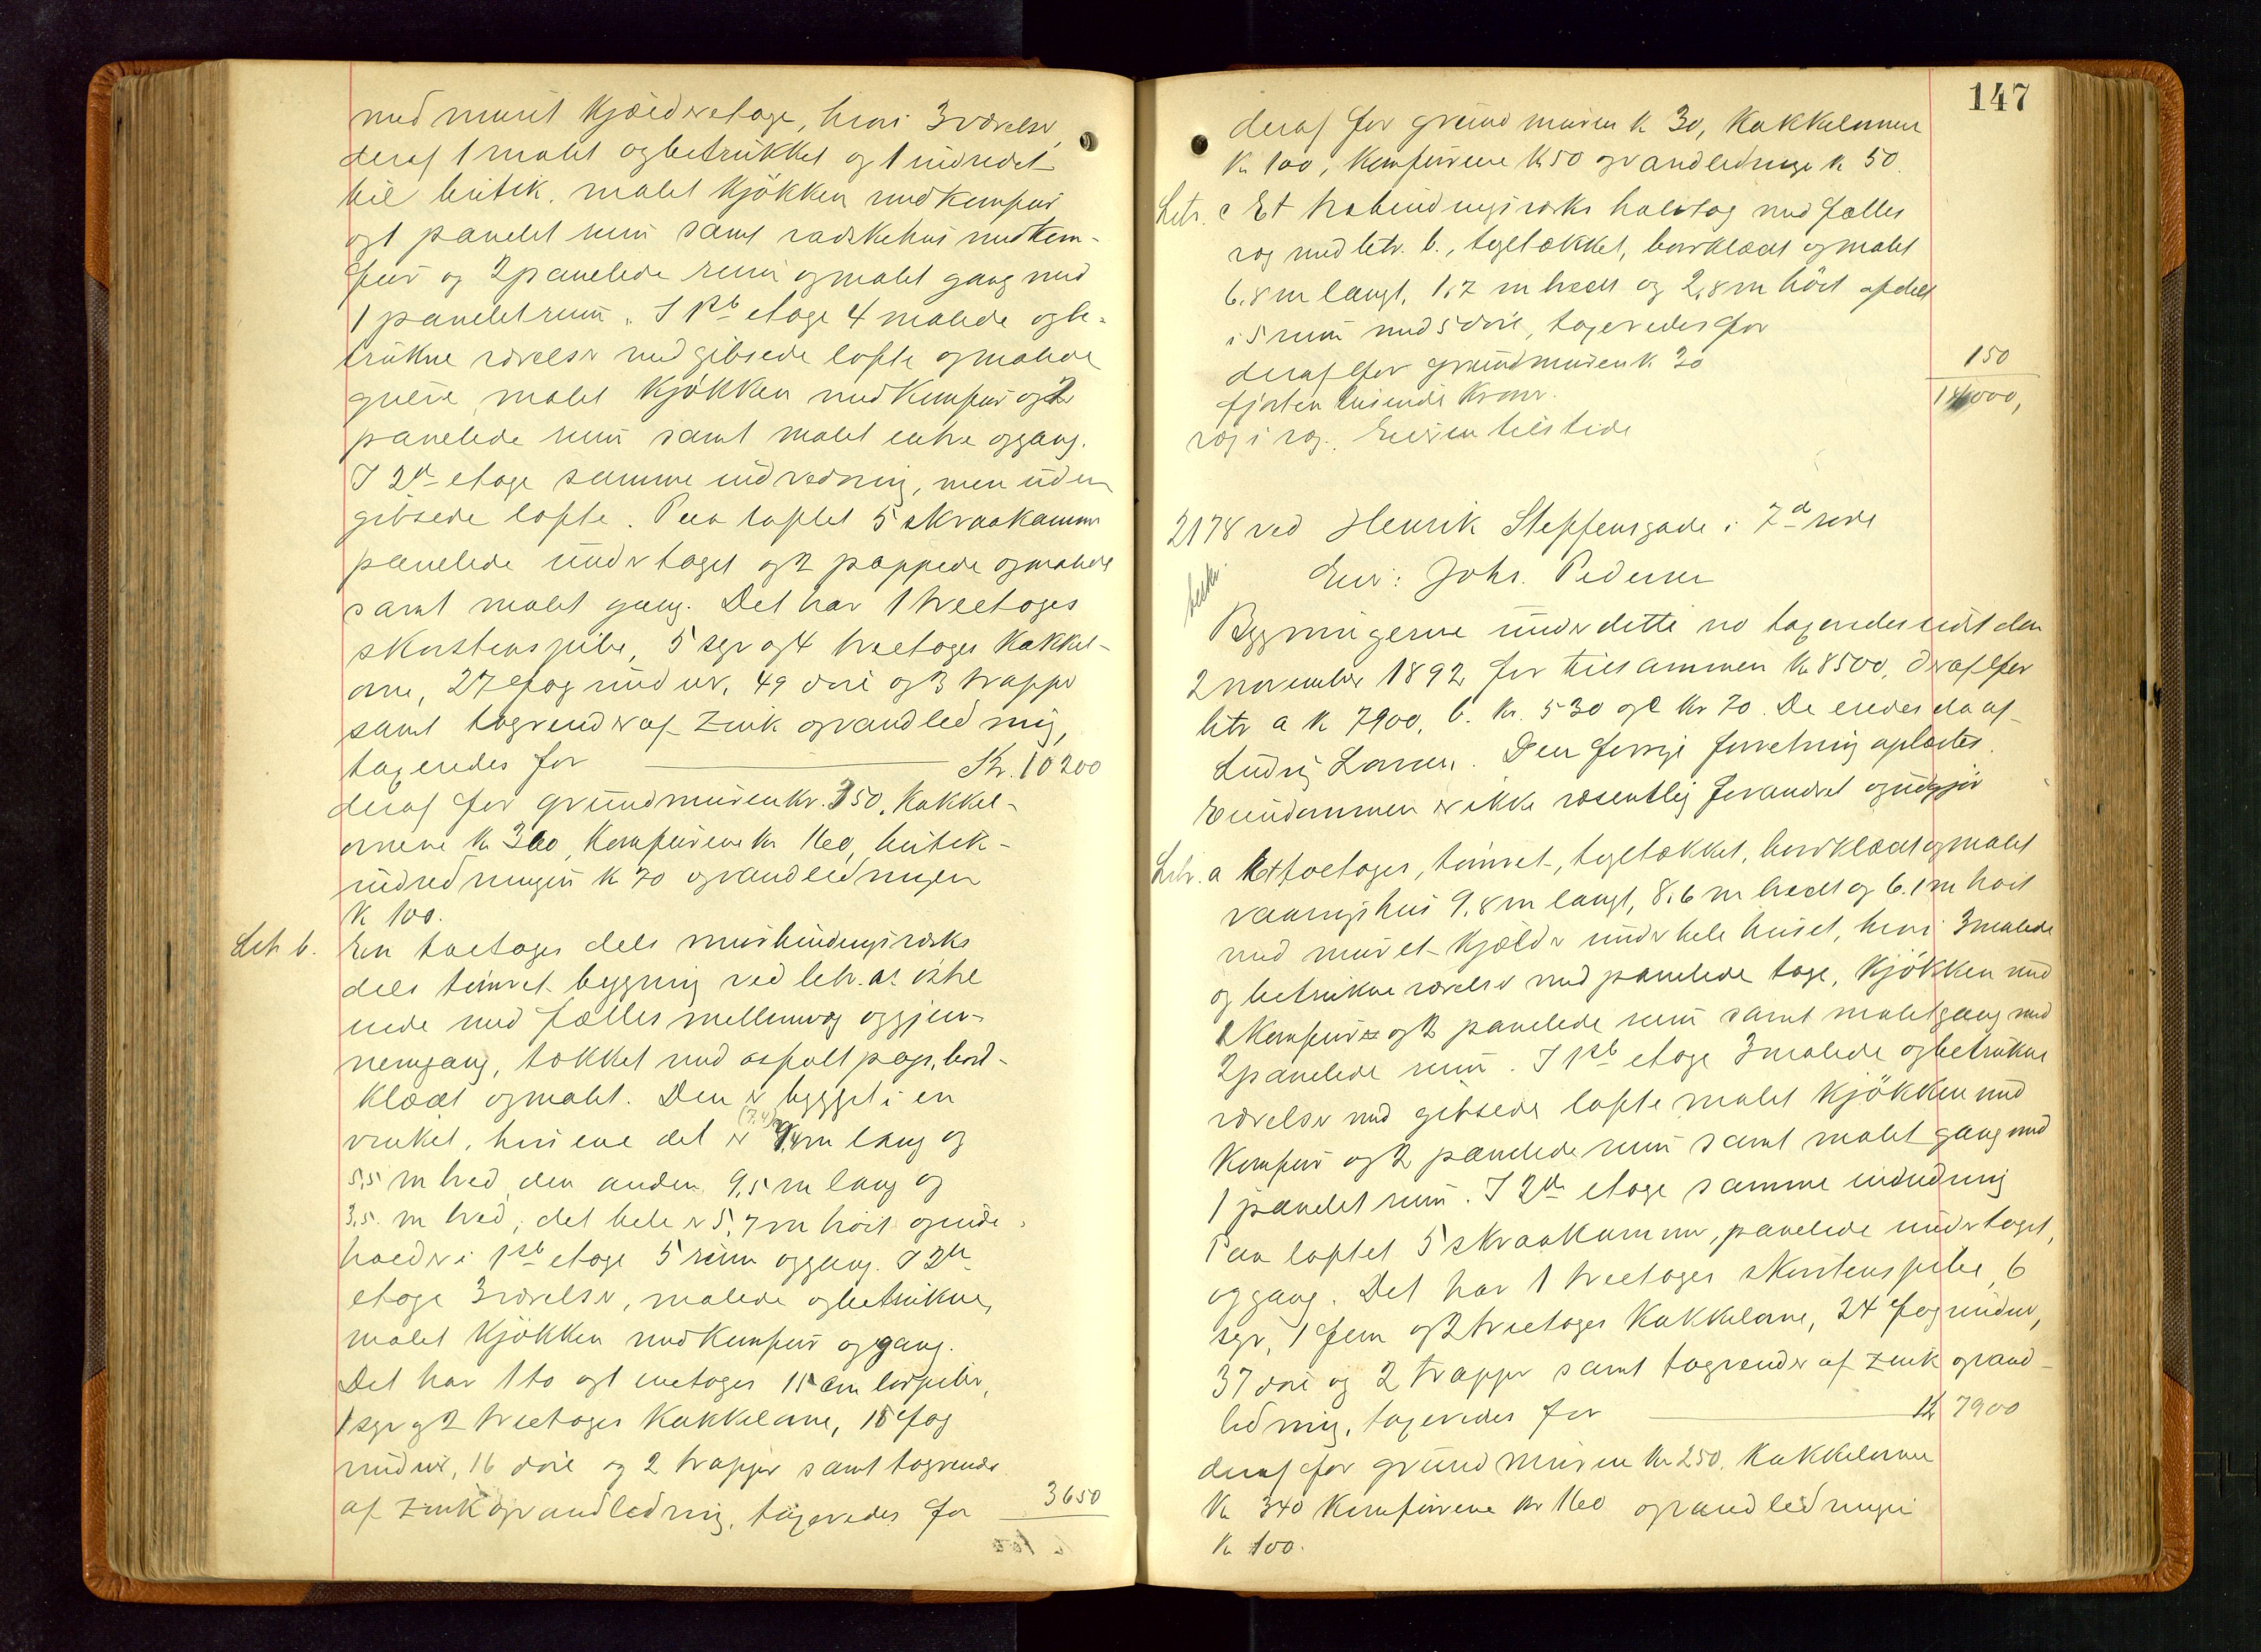 med muret kjælderetage, hvori 3 værelser,
deraf 1 malet og betrukket og 1 indredet
til butik, malet kjøkken med komfur
og 1 panelet rum samt vadskehus med kom-
fur og 2 panelede rum og malet gang med
1 panelet rum. I 1ste etage 4 malede og be-
trukne værelser med gibsede lofte og malede
gulve, malet kjøkken med komfur og 2
panelede rum samt malet entre og gang.
I 2den etage samme indredning, men uden
gibsede lofte. Paa loftet 5 skraakammer
panelede under taget og 2 pappede og malede
samt malet gang. Det har 1 treetages
skorstenspibe, 5 sgr og 4 treetages kakkel-
ovne, 27 fag vinduer, 49 døre og 3 trapper
samt tagrender af zink og vandledning,
taxeredes for Kr. 10200
deraf for grundmuren kr. 350, kakkel-
ovnene kr 360, komfurene kr 160, butik-
indredningen kr 70 og vandledningen
kr 100.
Litr. b. En toetages dels murbindingsværks
dels tømret bygning ved litr. a's østre
ende med fælles mellemvæg og gjen-
nemgang, tækket med asfaltpap, bord-
klædt og malet. Den er bygget i en
vinkel, hvis ene del er (7.4) 9,4 m lang og
5,5 m bred, den anden 9,5 m lang og
3,5 m bred; det hele er 5,7 m høit og inde-
holder i 1ste etage 5 rum og gang. I 2den
etage 3 værelser, malede og betrukne,
malet kjøkken med komfur og gang.
Det har 1 to og 1 enetages 15 cm lørpiber,
1 sgr og 2 treetages kakkelovne, 15 fag
vinduer, 16 døre og 2 trapper samt tagrende
af zink og vandledning, taxeredes for 3650
147
deraf for grundmuren kr 30, kakkelovnene
kr 100, komfurene kr 50 og vandledninge kr 50.
Litr. c Et trebindingsværks halvtag med fælles
væg med litr. b., tegltækket, bordklædt og malet
6,8 m langt, 1,7 m bredt og 2,8 m høit afdelt
i 5 rum med 5 døre, taxeredes for
deraf for grundmuren kr 20 150
fjorten tusinde kroner. 14000,
væg i væg. Eieren tilstede
2178 ved Henrik Steffensgade i 7de rode
Eier: Johs. Pedersen
Bygningerne under dette no taxeredes sidst den
2 november 1892 for tilsammen kr 8500, deraf for
litr a kr 7900, b. kr. 530 og c kr 70. De eiedes da af
Ludvig Larsen. Den forrige forretning oplæstes.
Eiendommen er ikke væsentlig forandret og udgjør
Litr. a Et toetages, tømret, tegltækket, bordklædt og malet
vaaningshus 9,8 m langt, 8,6 m bredt og 6.1 m høit
med muret kjælder under hele huset, hvori 3 malede
og betrukne værelser med panelede tage, kjøkken med
1 komfur og 2 panelede rum samt malet gang med
2 panelede rum. I 1ste etage 3 malede og betrukne
værelser med gibsede lofte malet kjøkken med
komfur og 2 panelede rum samt malet gang med
1 panelet rum. I 2den etage samme indredning
Paa loftet 5 skraakammer, panelede under taget,
og gang. Det har 1 treetages skorstenspibe, 6
sgr, 1 fem og 2 treetages kakkelovne, 24 fag vinduer,
37 døre og 2 trapper samt tagrender af zink og vand-
ledning, taxeredes for Kr 7900
deraf for grundmuren kr 250, kakkelovnene
kr 340 komfurene kr 160 og vandledningen
kr 100.